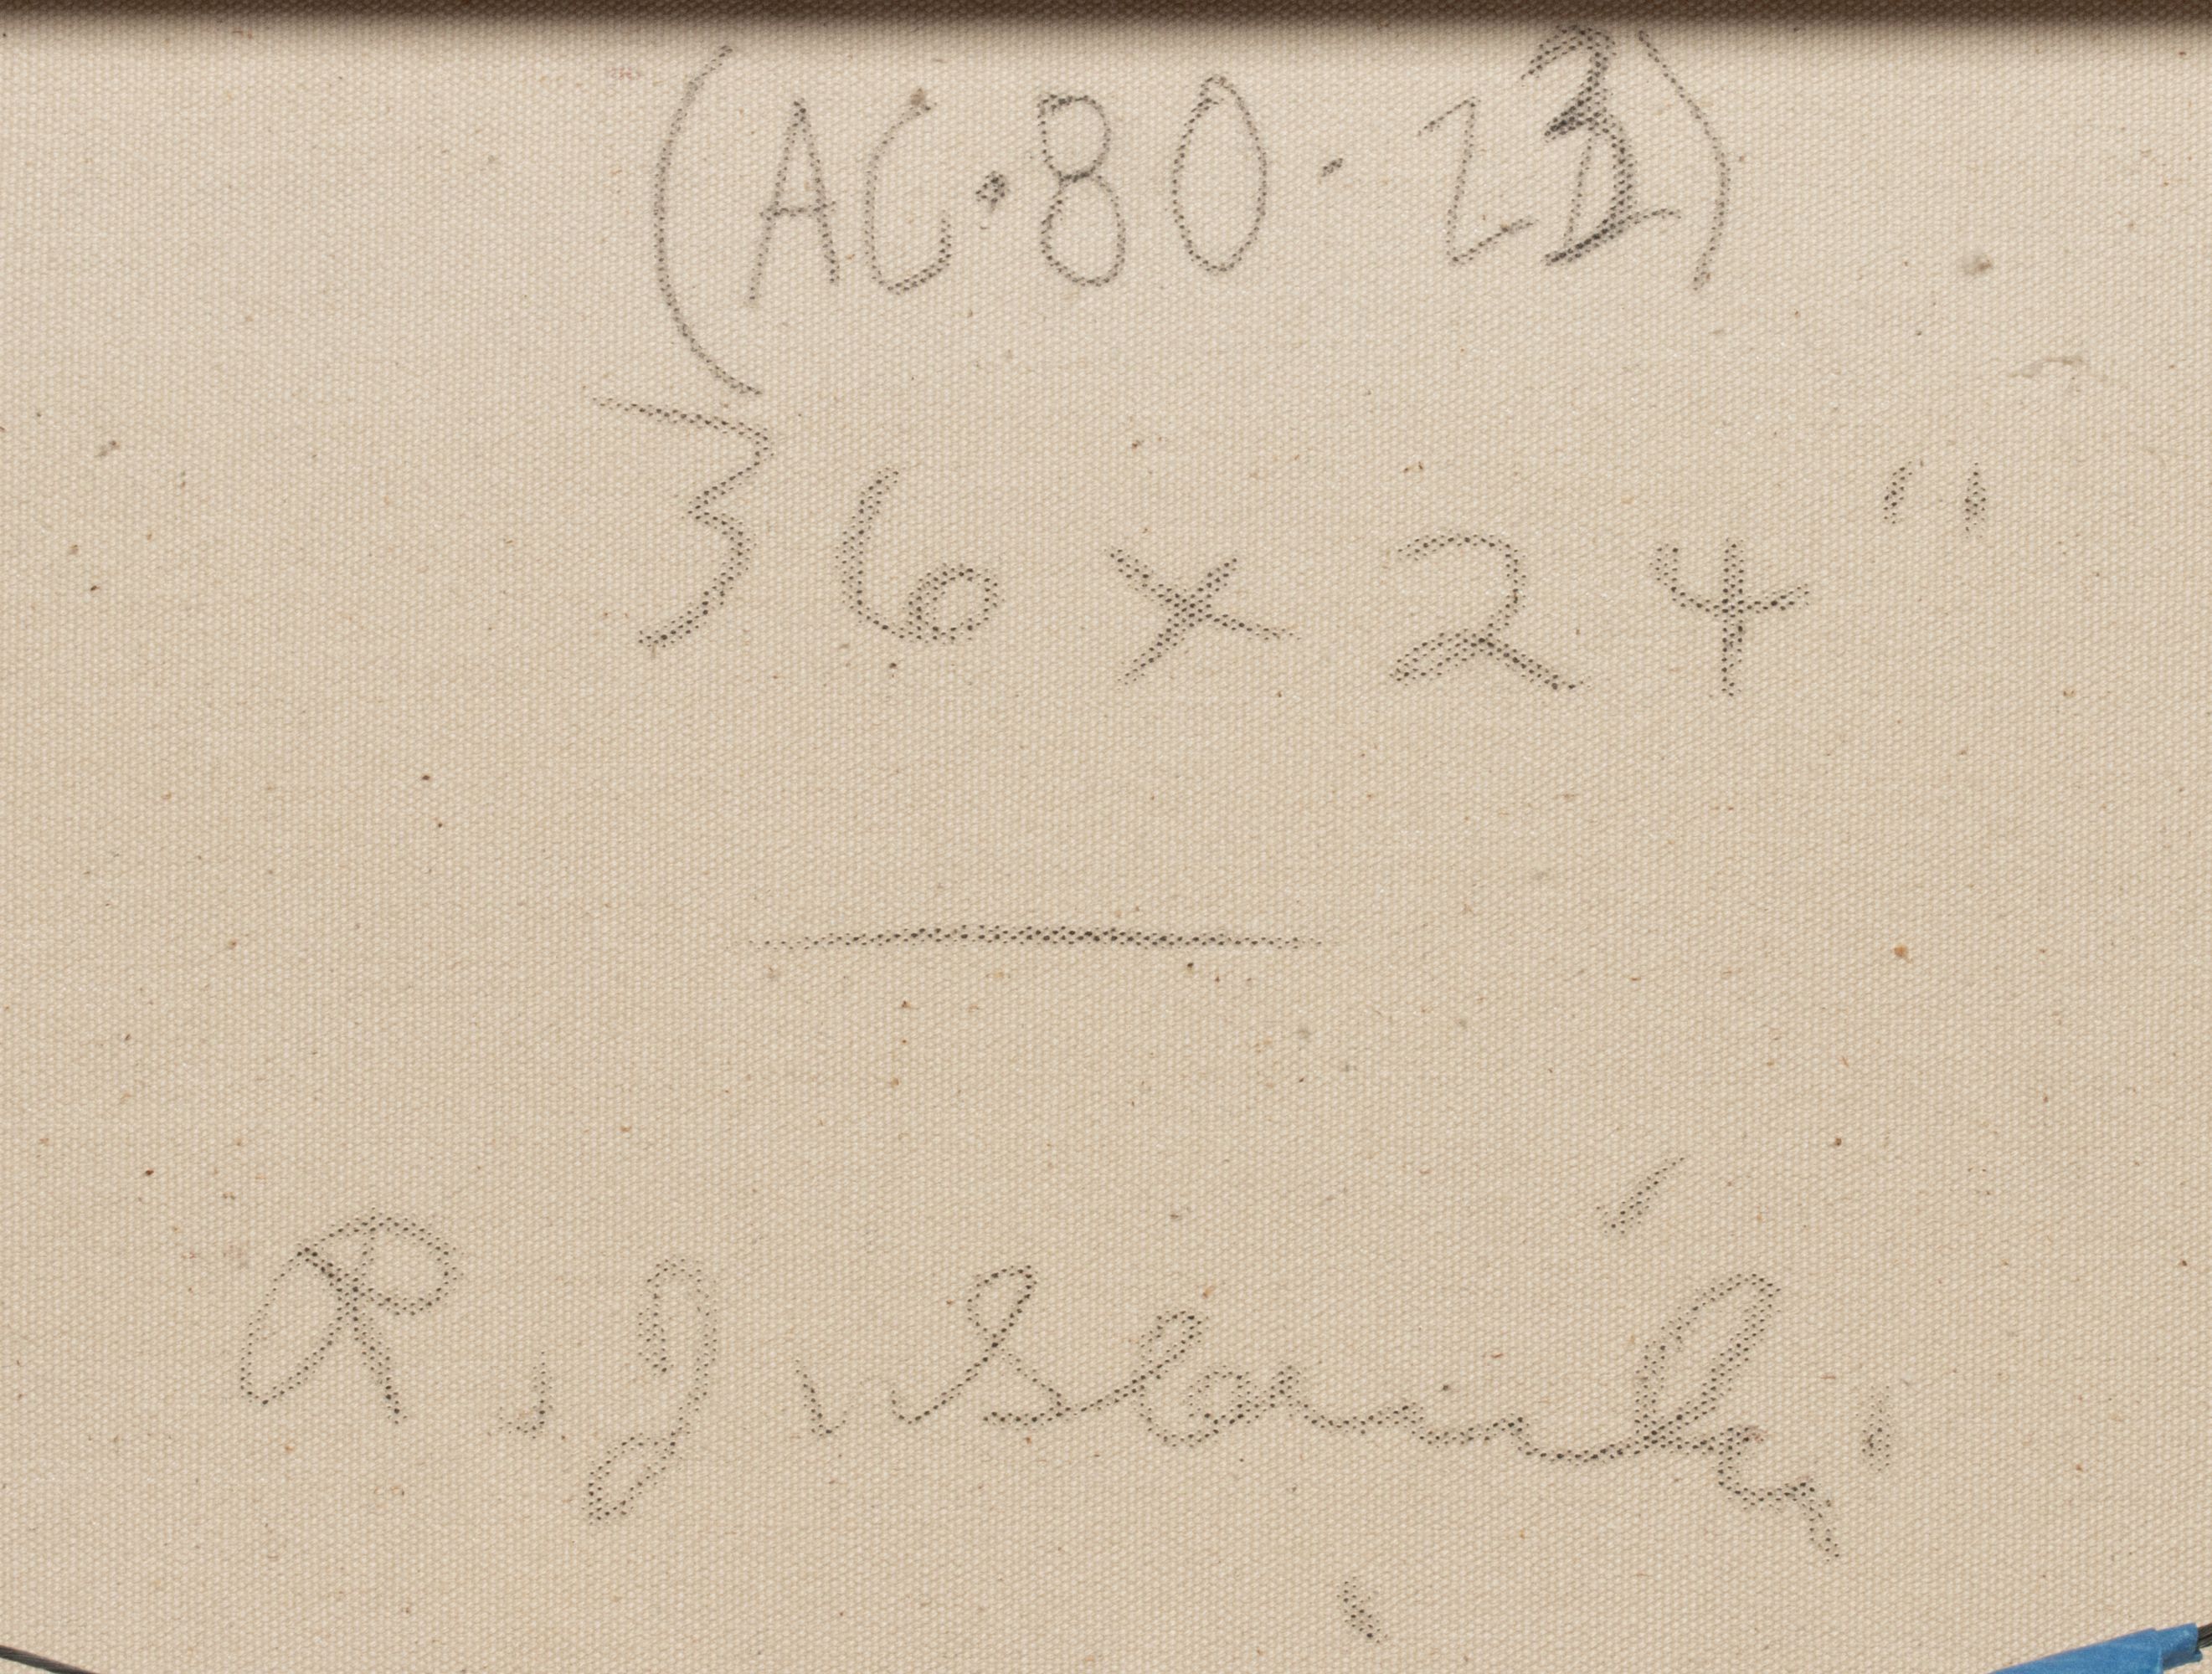 (AC·80·23)
36 x 24"
R.